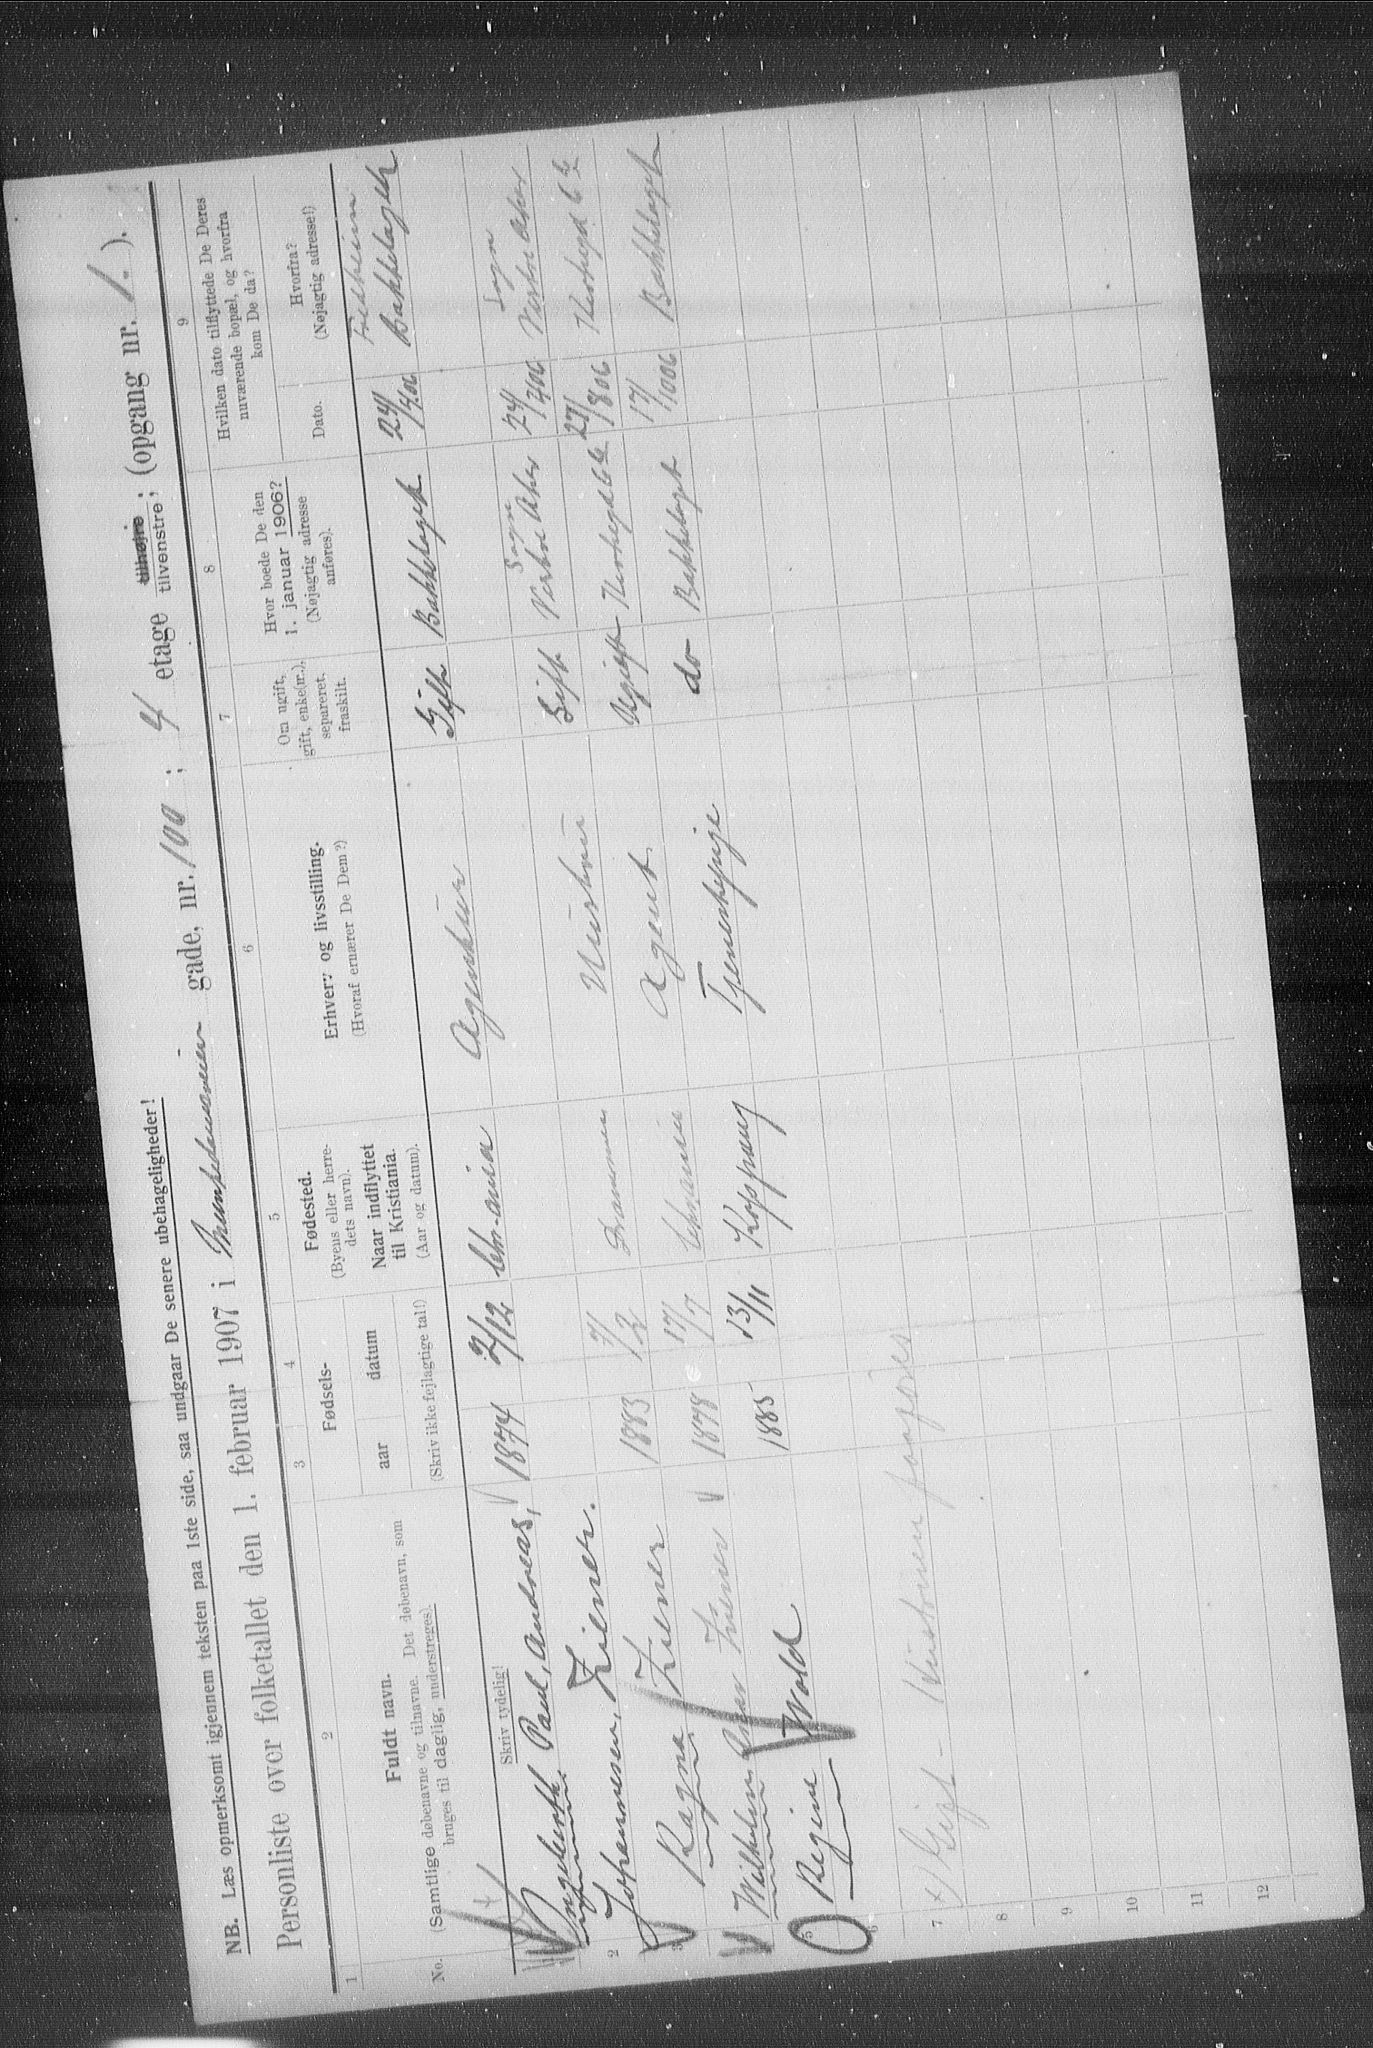 NB. Læs opmerksomt igjennem teksten paa 1ste side, saa undgaar De senere ubehageligheder!
Personliste over folketallet den 1. februar 1907 i Trondhjemsveien gade, nr. 100 ; 4 etage tilhøjre tilvenstre ; (opgang nr. 1. ).
1 2 3 4 5 6 7 8 9
No.
Fuldt navn.
(Samtlige døbenavne og tilnavne. Det døbenavn, som
bruges til daglig, understreges).
Skriv tydelig!
Fødsels-
aar datum
(Skriv ikke fejlagtige tal!)
Fødested.
(Byens eller herre-
dets navn).
Naar indflyttet
til Kristiania.
(Aar og datum).
Erhverv og livsstilling.
(Hvoraf ernærer De Dem?)
Om ugift,
gift, enke(nr.),
separeret,
fraskilt.
Hvor boede De den
1. januar 1906?
(Nøjagtig adresse
anføres).
Hvilken dato tilflyttede De Deres
nuværende bopæl, og hvorfra
kom De da?
Dato.
Hvorfra?
(Nøjagtig adresse!)
Paul, Andreas, 1874 2/12 Chr.ania Agentur Gift Bækkelaget 24/4 06 Bækkelaget
2 Johannesen, Ziener.
3 Ragna Ziener 1883 7/2 Drammen Hustru Gift Sogn Vestre Aker 24/4 06 Sogn Vestre Aker
Wilhelm Ziener 1878 17/7 Agent Ugift 27/8 06
5 Regine Wold 1885 13/11 Koppang Tjenestepige do Bækkelaget 17/10 06 Bækkelaget
6
7 x) Gift - Hustruen
8
9
10
11
12